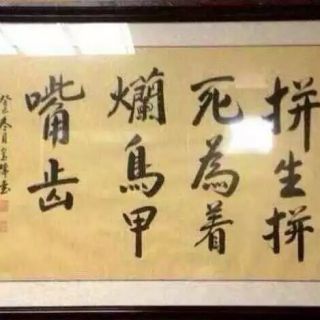 拼生拼
死為着
爛鳥甲
嘴齿